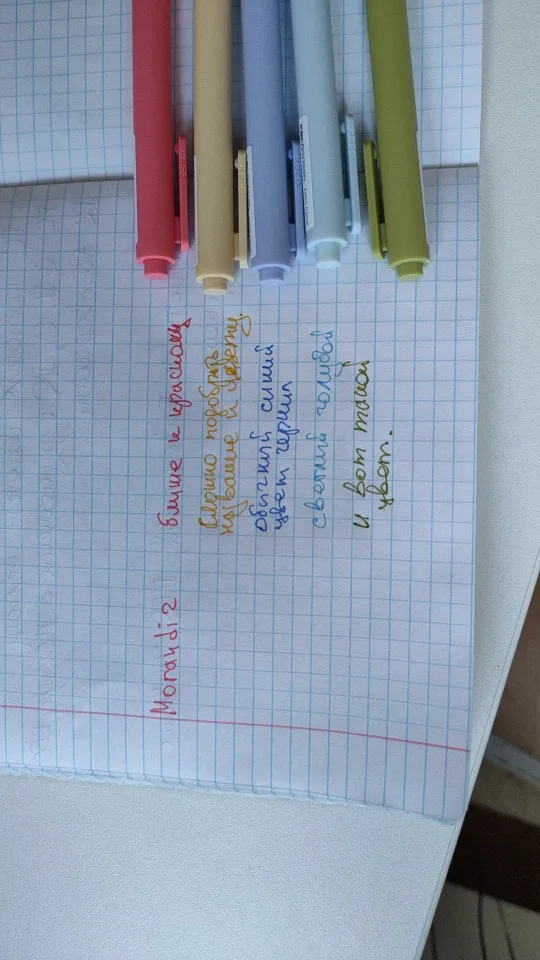 Morandi 2
ближе к красному
сложно подобрать
название к цвету
обычный синий
цвет чернил
светлый голубой
и вот такой
цвет.